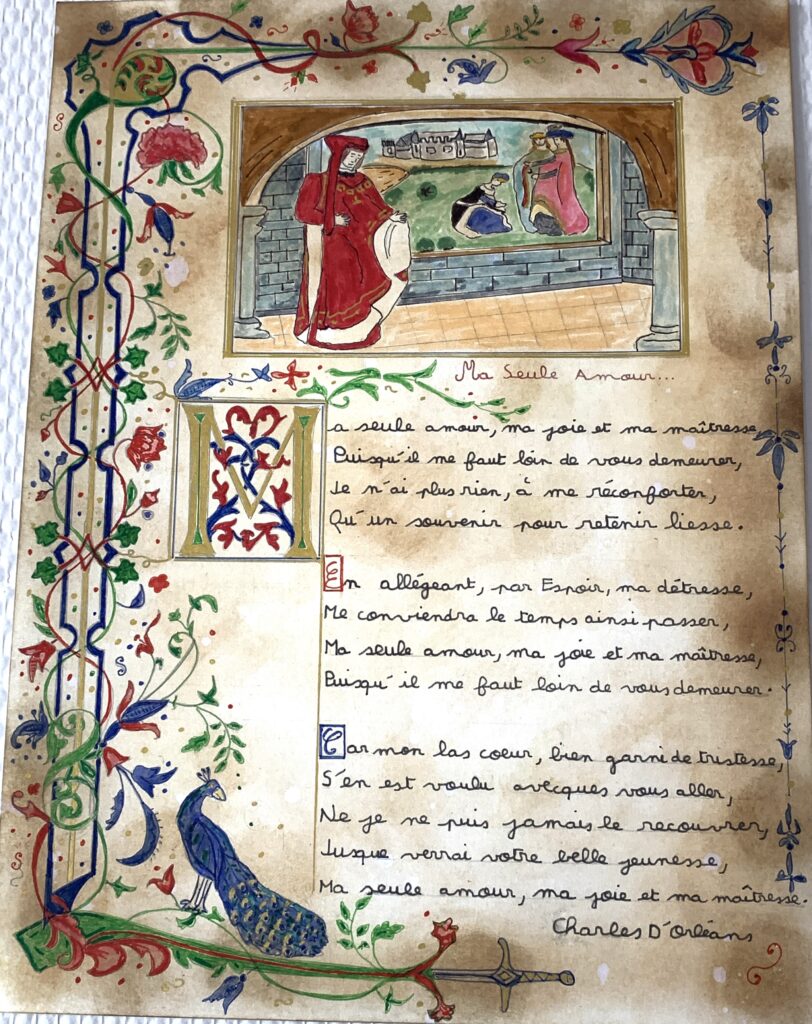 Ma Seule Amour...
Ma seule amour, ma joie et ma maîtresse,
Puisqu'il me faut loin de vous demeurer,
Je n'ai plus rien, à me réconforter,
Qu'un souvenir pour retenir liesse.
En allégeant, par Espoir, ma détresse,
Me conviendra le temps ainsi passer,
Ma seule amour, ma joie et ma maîtresse,
Puisqu'il me faut loin de vous demeurer.
Car mon las coeur, bien garni de tristesse,
S'en est voulu avecques vous aller,
Ne je ne puis jamais le recouvrer,
Jusque verrai votre belle jeunesse,
Ma seule amour, ma joie et ma maîtresse.
Charles D'Orléans